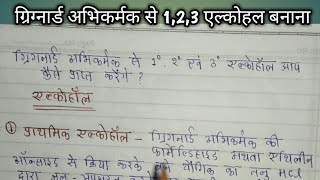 ग्रिग्नार्ड अभिकर्मक से 1,2,3 एल्कोहल बनाना
ग्रिगनार्ड अभिकर्मक से 1° 2° एवं 3° एल्कोहॉल आप
कैसे प्राप्त करेंगे ?
एल्कोहॉल
① प्राथमिक एल्कोहॉल - ग्रिगनार्ड अभिकर्मक की
फार्मेल्डिहाइड अथवा एथिलीन
ऑक्साइड से क्रिया करके बने यौगिक का तनु HCl
द्वारा जल-